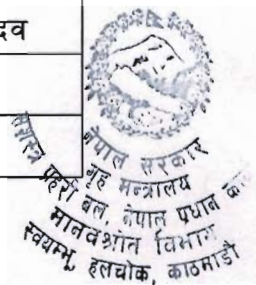 देव
नेपाल सरकार
गृह मन्त्रालय
प्रहरी बल, नेपाल प्रधान
मानवश्रोत विभाग
स्वयम्भू, हलचोक, काठमाडौं